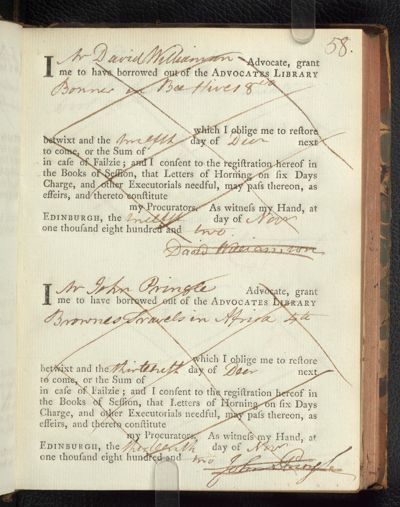 58.
I Mr David Williamson Advocate, grant
me to have borrowed out of the ADVOCATES LIBRARY
Bonner on Bee Hives 8vo
which I oblige me to reſtore
betwixt and the twelfth day of Decr next
to come, or the Sum of
in caſe of Failzie; and I conſent to the regiſtration hereof in
the Books of Seſſion, that Letters of Horning on ſix Days
Charge, and other Executorials needful, may paſs thereon, as
effeirs, and thereto conſtitute
my Procurators, As witneſs my Hand, at
EDINBURGH, the twelfth day of Novr
one thouſand eight hundred and two.
David Williamson
I Mr John Pringle Advocate, grant
me to have borrowed out of the ADVOCATES LIBRARY
Brownes Travels in Africa 4to
which I oblige me to reſtore
betwixt and the thirteenth day of Decr next
to come, or the Sum of
in caſe of Failzie; and I conſent to the regiſtration hereof in
the Books of Seſſion, that Letters of Horning on ſix Days
Charge, and other Executorials needful, may paſs thereon, as
effeirs, and thereto conſtitute
my Procurators, As witneſs my Hand, at
EDINBURGH, the thirteenth day of Novr
one thouſand eight hundred and two
John Pringle